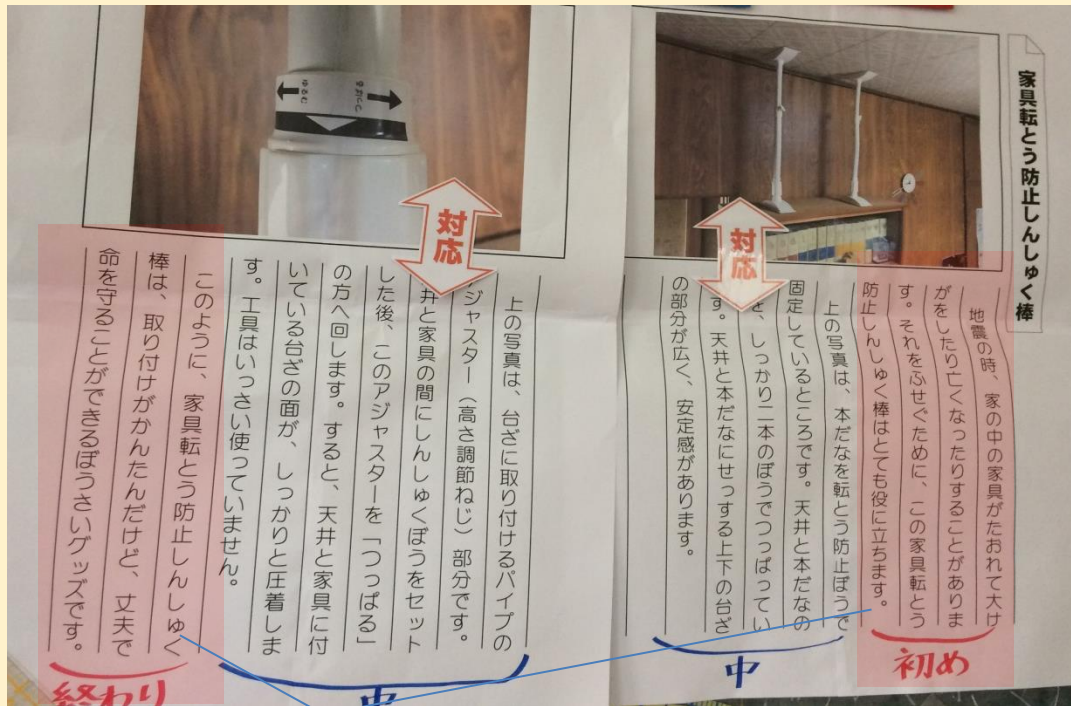 家具転とう防止しんしゅく棒
地震の時、家の中の家具がたおれて大け
がをしたり亡くなったりすることがありま
す。それをふせぐために、この家具転とう
防止しんしゅく棒はとても役に立ちます。
上の写真は、本だなを転とう防止ぼうで
固定しているところです。天井と本だなの
、しっかり二本のぼうでつっぱってい
す。天井と本だなにせっする上下の台ざ
の部分が広く、安定感があります。
対応
初め
中
ゆるむ
上の写真は、台ざに取り付けるパイプの
ジャスター(高さ調節ねじ)部分です。
井と家具の間にしんしゅくぼうをセット
した後、このアジャスターを「つっぱる」
の方へ回します。すると、天井と家具に付
いている台ざの面が、しっかりと圧着しま
す。工具はいっさい使っていません。
対応
中
このように、家具転とう防止しんしゅく
棒は、取り付けがかんたんだけど、丈夫で
命を守ることができるぼうさいグッズです。
終わり